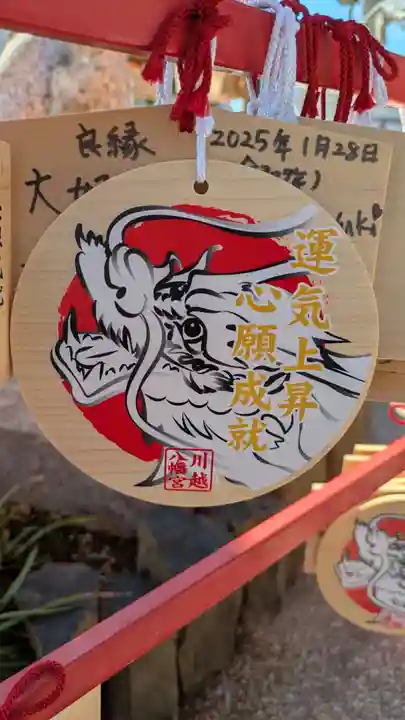 良縁
2025年1月28日
大
運気上昇
心願成就
川越
八幡宮